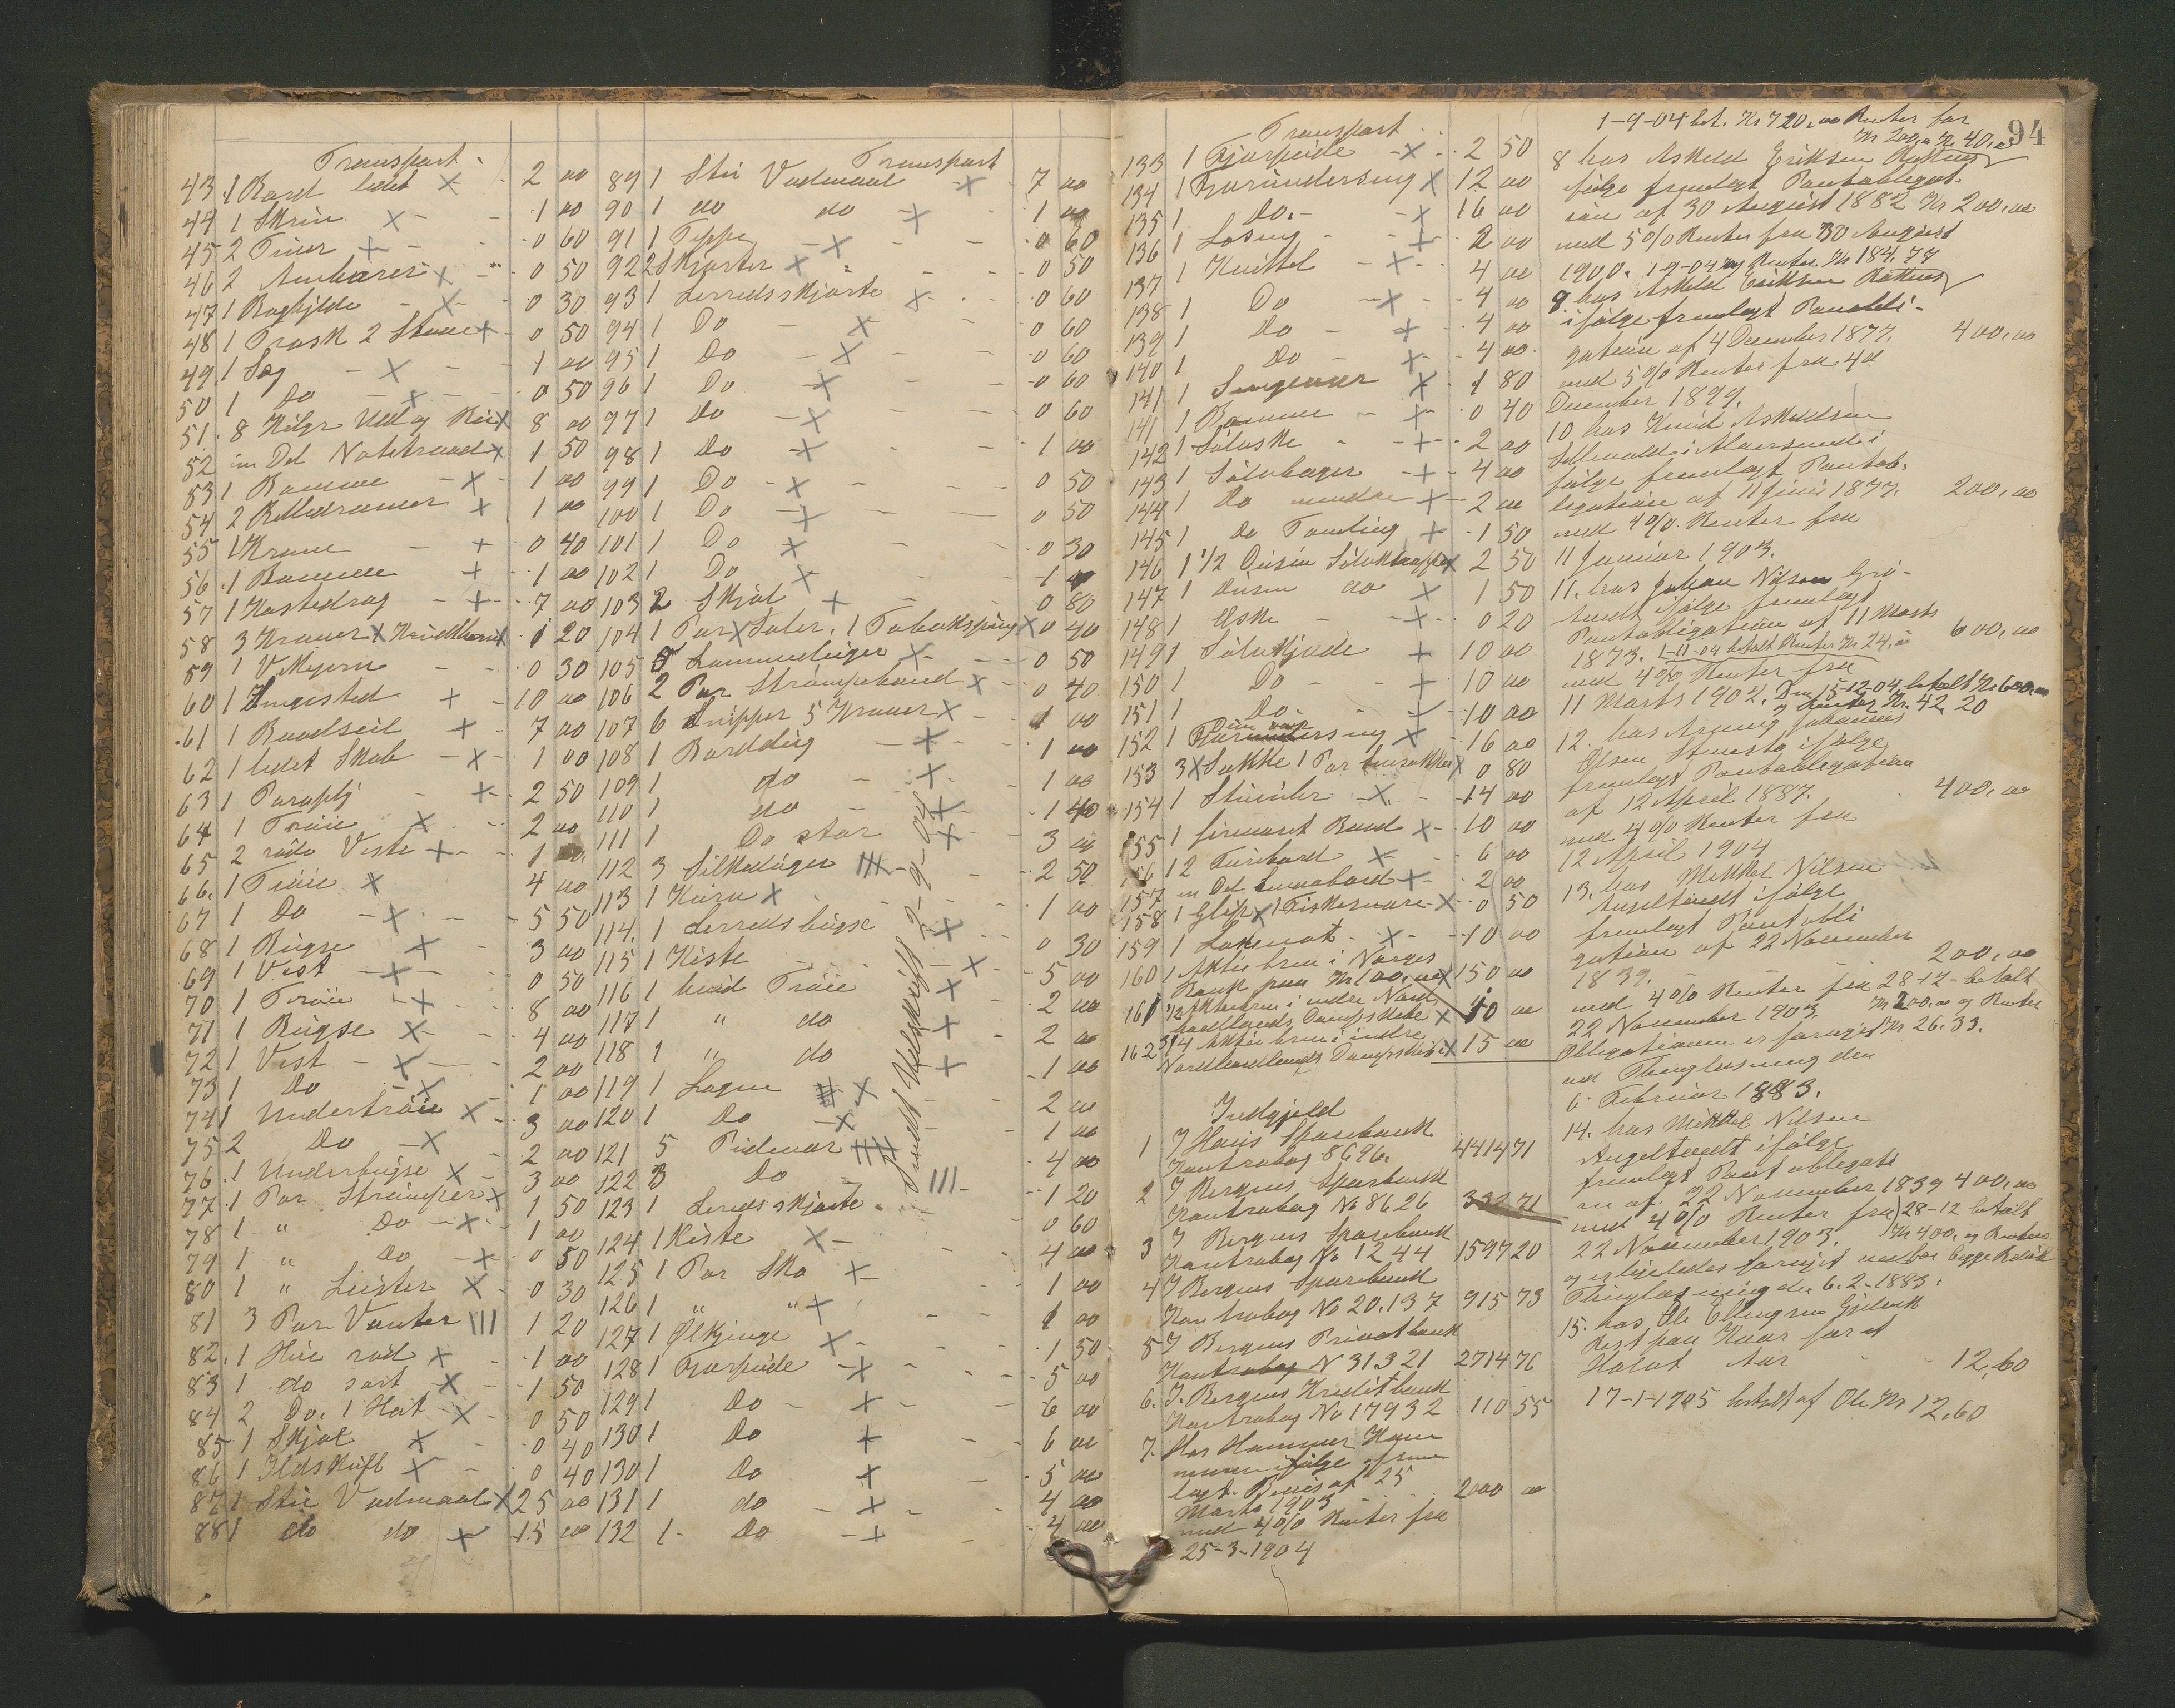 Transport.
43 1 Bord lidet X - 2 00
44 1 Skrin X - - 1 00
45 2 Tiner X - - 0 60
46 2 Ambarer X - 0 50
47 1 Boghylde - X - 0 30
48 1 Trosk 2 Stole X - 0 50
49 1 Sag - X - 1 00
50 1 Do - X - 0 50
51. 8 Kilgr Uld og X 8 00
52 en Del Notetraad X 1 50
53 1 Bomme - X - 1 00
54 2 X 1 00
55 1 Krone - X 0 40
56. 1 Bomme X 1 00
57 1 Kastedrag - X - 7 00
58 3 Kroner X X 1 20
59 1 Vækjern - - 0 30
60 1 X - 10 00
61 1 Baadseil X - 7 00
62 1 lidet Skab - X - 1 00
63 1 Paraply - X - 2 50
64 1 Trøie X 2 00
65 2 røde Veste X - - 1 00
66. 1 Trøie X 4 00
67 1 Do - X - - 5 50
68 1 Bugse X - 3 00
69 1 Vest - X - 0 50
70 1 Trøie - X - 8 00
71 1 Bugse X - 4 00
72 1 Vest - X - 2 00
73 1 Do - X 1 00
74 1 Undertrøie X - 3 00
75 2 Do - X - 2 00
76. 1 Underbugse X - 3 00
77. 1 Par Strømper X 1 50
78 1 " Do - X - 1 00
79 1 " Do - X 0 50
80 1 " Leister X - 0 30
81 3 Par Vanter III 1 20
82. 1 Hue rød X - 1 00
83 1 do sort - X - 1 50
84 2 Do. 1 Hat - X - 0 50
85 1 Skjøl X - 0 40
86 1 Ildskuft X - 0 40
87 1 Stu Vadmaal X 25 00
88 1 do do X 15 00
Transport
89 1 Stu Vadmaal X - 7 00
90 1 do do - X 1 00
91 1 Teppe - X - - 0 60
92 2 Skjorter X " - - 0 50
93 1 Lerredsskjorte X - 0 60
94 1 Do - X - 0 60
95 1 Do - X - - 0 60
96 1 Do - X - 0 60
97 1 do - X - 0 60
98 1 Do - X - 1 00
99 1 Do - X - - 0 50
100 1 Do - X - 0 50
101 1 Do X - 0 30
102 1 Do X - 1 00
103 2 Skjøl X - 0 80
104 1 Par X Saler. 1 Tobakspung X 0 40
105 5 Lommeduger X - - 0 50
106 2 Par Strømpebaand X - 0 40
107 6 Snipper 5 Kraver X - 1 00
108 1 Borddug - X - 1 00
109 1 do - X - 1 00
110 1 do - X 1 40
111 1 Do stor X 3 00
112 3 Silkeduger III - - 2 50
113 1 Kurv X - 1 00
114. 1 Lerredsbugse X - 0 30
115 1 Kiste - X - 5 00
116 1 hvid Trøie X - 2 00
117 1 " do X - 2 00
118 1 " do X - 1 00
119 1 Lagen X - 2 00
120 1 Do - X 1 00
121 5 Pudevar 4 00
122 3 Do - III - 1 20
123 1 Leredsskjorte. - 0 60
124 1 Kiste X - - 4 00
125 1 Par Sko X - 1 00
126 1 " " X - - 1 00
127 1 Ølkjinge X - 1 50
128 1 Farpude - X - - 5 00
129 1 Do - X - - 6 00
130 1 Do X - - 6 00
130 1 Do X - 5 00
131 1 do - X - 4 00
132 1 - Do - X - 4 00
2-9-04
Transport
133 1 Fjærpude - X - 2 50
134 1 Farunderseng X 12 00
135 1 Do. - - X 16 00
136 1 Loseng - - X - 2 00
137 1 Kvittel - X - 4 00
138 1 Do - X - - 4 00
139 1 Do - X - 4 00
140 1 Do - X - 4 00
141 1 X - 1 80
141 1 Bomme - X - 0 40
142 1 Søløske - - X - 2 00
143 1 Sølvbæger - X - 4 00
144 1 Do mindre X - 2 00
145 1 Do Tomling X - 1 50
146 1 1/2 Dusin Sølvknapper X 2 50
147 1 Dusin do X 1 50
148 1 Æske - - X - 0 20
149 1 Sølvkjæde X 10 00
150 1 Do - - X 10 00
151 1 Do - - X - 10 00
152 1 X - 16 00
153 3 X Sække 1 Par X 0 80
154 1 - X - - 14 00
155 1 firearet Baad X - 10 00
156 12 Turbord X - 6 00
157 en Del X - 2 00
158 1 Glip X 1 Fiskesnøre - X - 0 50
159 1 Laksenot - X - - 10 00
160 1 Aktiebrev i Norges
Bank paa Kr 100,00 X 150 00
161 1/2 Aktiebrev i indre Nord
hordlands Dampskibe X 40 00
162 3/4 Aktiebrev i indre
Nordhordlands Dampskibe X 15 00
Indgjeld
1 I Haus Sparebank
Kontrabog 8696. 4414 71
2 I Bergens Sparebank
Kontrabog No 8626 332 71
3 I Bergens Sparebank
Kontrabog No 1244 1597 20
4 I Bergens Sparebank
Kontrabog No 20.137 915 73
5 I Bergens Privatbank
Kontrabog N 31321 2714 76
6. I. Bergens Kreditbank
Kontrabog No 17932 110 55
7. Hos Hammer Kom
mune ifølge frem
lagt Bevis af 25
Marts 1903 2000 00
med 4% Renter fra
25-3-1904
94
1-9-04 bet. Kr 720,00 Renter for
Kr 200,00 Kr 40,00
8 hos Askeld Eriksen
følge fremlagt Pantobligat-
ion af 30 August 1882 Kr 200,00
med 5% Renter fra 30 August
1900. 1-9-04 og Renter Kr 184.74
9 hos Askeld Eriksen
ifølge fremlagt Pantobli-
gation af 4 December 1877. 400,00
med 5% Renter fra 4de
December 1899.
10 hos Knud Askeldsen
i Alversund i
følge fremlagt Pantob-
ligation af 11 Juni 1877. 200,00
med 4%. Renter fra
11 Januar 1903.
11. hos Johan Nilsen
ifølge fremlagt
Pantobligation af 11 Marts
1873. 1-11-04 betalt Renter Kr 24,00 600,00
med 4% Renter fra
11 Marts 1902. Den 15-12-04 betalt Kr 600,00
og Renter Kr. 42 20
12. hos Johannes
Olsen ifølge
fremlagt Pantobligation
af 12 April 1887. 400,00
med 4% Renter fra
12 April 1904
13. hos Mikkel Nilsen
Angeltvedt ifølge
fremlagt Pantobli
gation af 22 November
1839. 200,00
med 4% Renter fra 28-12- betalt
22 November 1903. Kr 200,00 og Renter
Obligationen er fornyet Kr 26.33.
ved Thinglæsning den
6 Februar 1883.
14. hos Mikkel Nilsen
Angeltvedt ifølge
fremlagt Pantobligati
on af 22 November 1839 400,00
med 4% Renter fra 28-12 betalt
22 November 1903. Kr 400, og Renter
Thinglæsning den 6.2.1883.
15. hos Ole Ellingsen
Rest paa Kaar for et
Halvt Aar - - 12,60
17-1-1905 betalt af Ole Kr 12,60